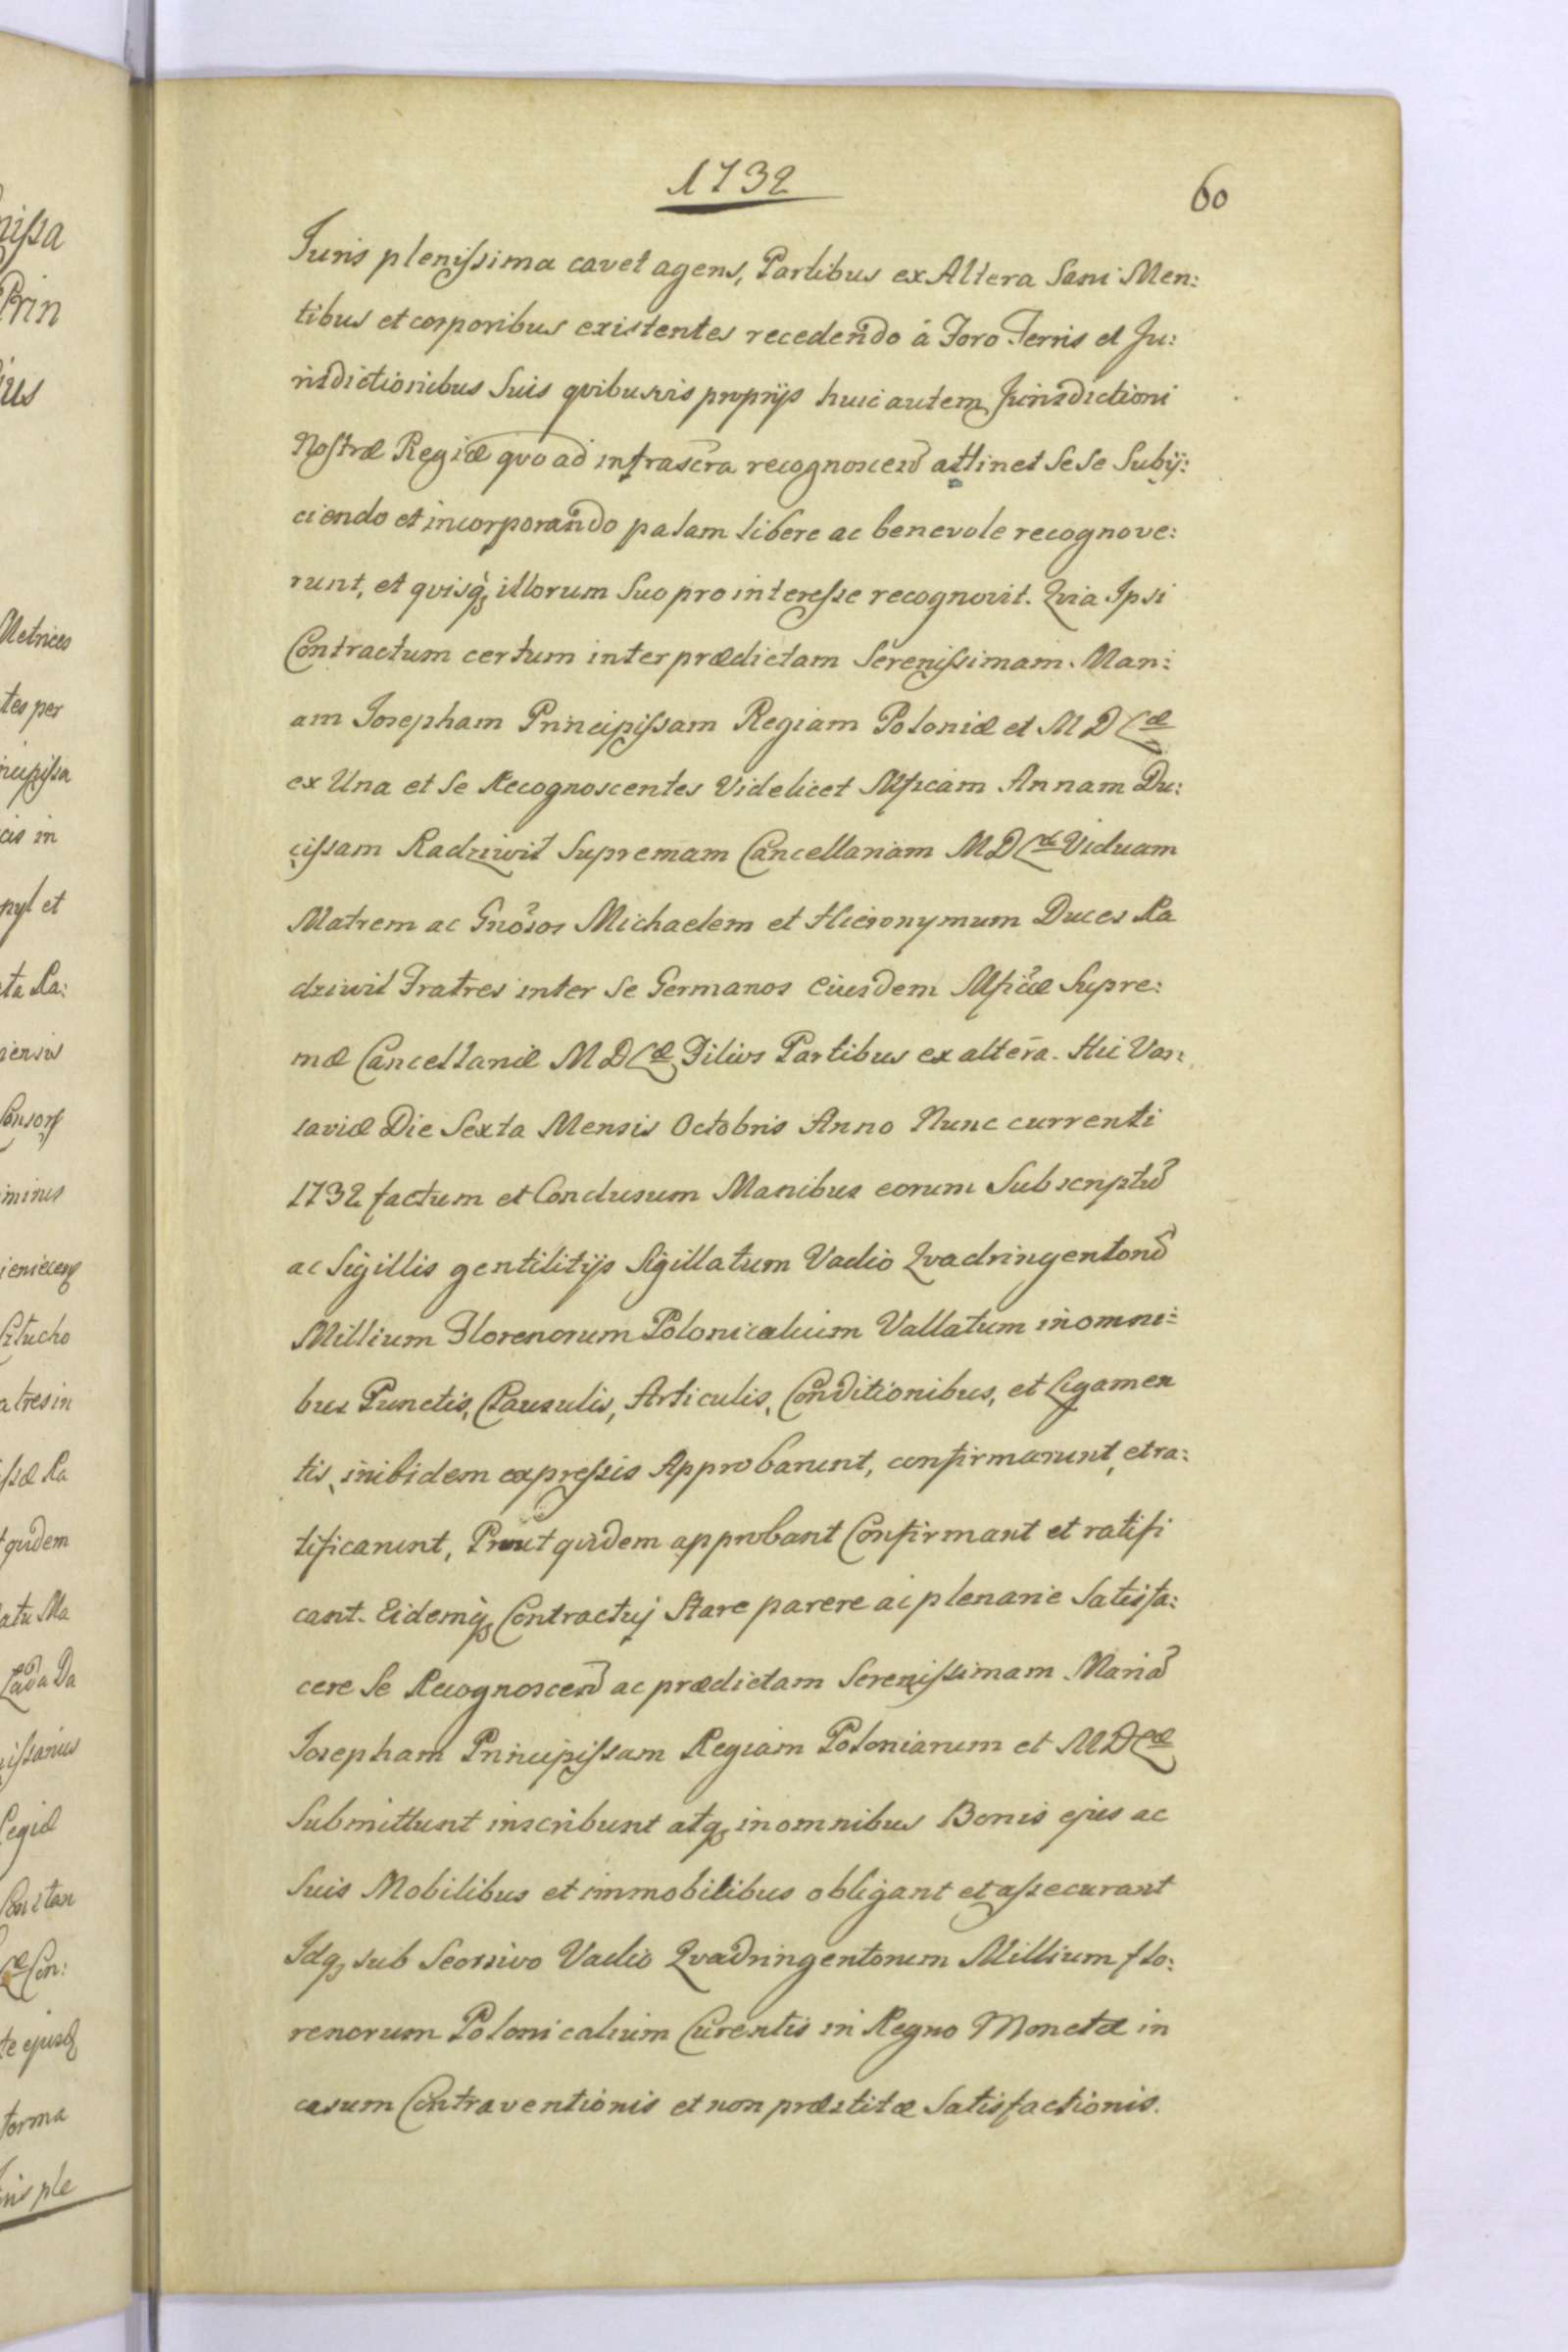 1732
60
Juris plenissima cavet agens, Partibus ex Altera Sani Men:
tibus et corporibus existentes recedendo á Foro Terris et Ju:
risdictionibus Suis qvibusvis proprijs huic autem Jurisdictioni
Nostræ Regiæ qvo ad infrascra recognoscen attinet Se Se Subij:
ciendo et incorporando palam libere ac benevole recognove:
runt, et qvisq; illorum Suo pro interesse recognovit. Qvia Ipsi
Contractum certum inter prædictam Serenissimam Mari:
am Josepham Principissam Regiam Poloniæ et M D Læ
ex Una et Se Recognoscentes Videlicet Mficam Annam Du:
cissam Radziwił Supremam Cancellariam M D Læ Viduam
Matrem ac Gnosos Michaelem et Hieronymum Duces Ra
dziwił Fratres inter Se Germanos Eiusdem Mficæ Supre:
mæ Cancellariæ M D Læ Filios Partibus ex altera. Hic Var:
saviæ Die Sexta Mensis Octobris Anno Nunc currenti
1732 factum et Conclusum Manibus eorum Subscriptu
ac Sigillis gentilitijs Sigillatum Vadio Qvadringentoru
Millium Florenorum Polonicalium Vallatum in omni:
bus Punctis, Clausulis, Articulis, Conditionibus, et Ligamen
tis, inibidem expressis Approbarunt, confirmarunt, et ra:
tificarunt, Prout qvidem approbant Confirmant et ratifi
cant. Eidemq; Contractuj Stare parere ac plenarie Satisfa:
cere Se Recognoscen ac prædictam Serenissimam Maria
Josepham Principissam Regiam Poloniarum et M D Læ
Submittunt inscribunt atq; in omnibus Bonis ejus ac
Suis Mobilibus et immobilibus obligant et assecurant
Idq; sub Seorsivo Vadio Qvadringentorum Millium flo:
renorum Polonicalium Curentis in Regno Monetæ in
casum Contraventionis et non præstitæ Satisfactionis.